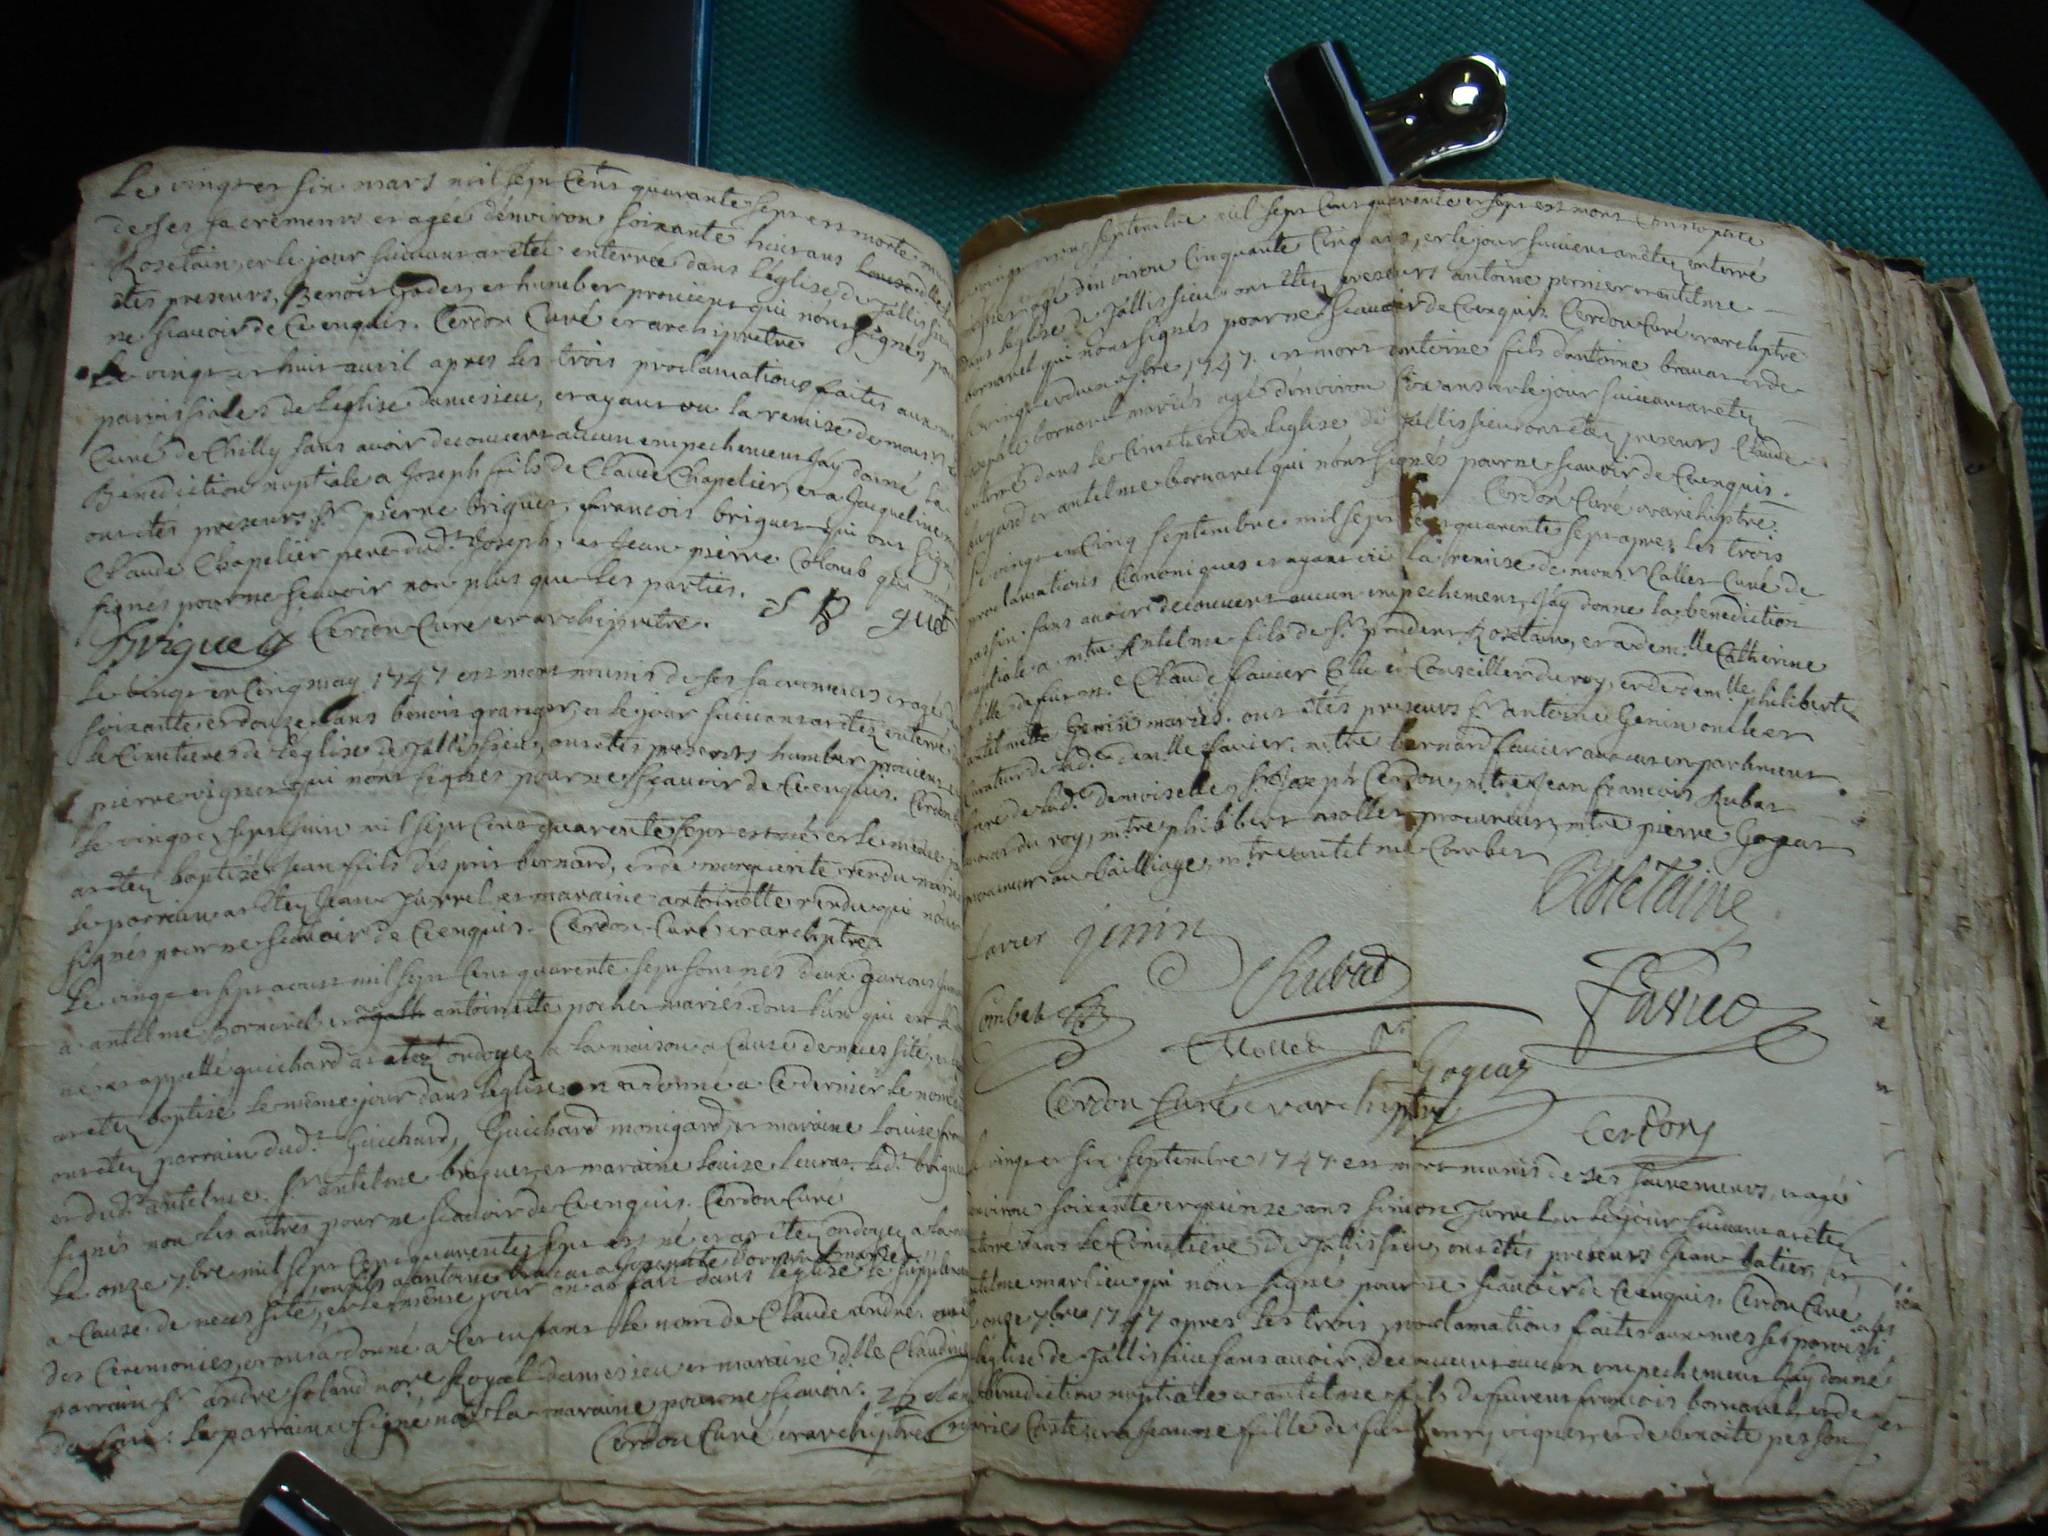 Le vingt et six mars mil sept Cent quarante sept est morte munie
de ses sacrements et agée d'environ soixante huit ans
Rosetain, et le jour suivant a été enterrée dans l'église de Jallissieu
étés presents, Benoit Goder, et humber provient qui n'ont signés pour
ne scavoir de ce enquis. Cerdon Curé et archipretre
Le vingt et huit avril apres les trois proclamations faites aux
parroissiales de l'eglise damesieu, et ayant vu la remise de mons.r
Curé de Chilly sans avoir decouvert aucun empechement J'ay donné la
Bénédiction nuptiale a Joseph fils de Claude Chapelier, et a Jacqueline
ont étés presents s.r pierre briguet, francois briguet qui ont signé
Claude Chapelier pere dud.t Joseph, et Jean pierre Colomb qui n'ont
signés pour ne scavoir non plus que les parties.
Briguet Cerdon Curé et archipretre.
Le vingt et Cinq may 1747 est mort munis de ses sacrements et agé
soixante et douze ans benoit granger, et le jour suivant a été enterré
le Cimetiere de l'église de Jallissieu, ont étés presents humber provient
pierre vignier qui n'ont signés pour ne scavoir de ce enquis. Cerdon
Le vingt et sept juin mil sept Cent quarante sept est né et le même
a été baptisé Jean fils d'esprit bernard, et de marguerite rendu mariés
le parrain a été Jean Jurrel et maraine antoinette rendu qui n'ont
signés pour ne scavoir de ce enquis. Cerdon Curé et archiptre
Le vingt et sept aoust mil sept Cent quarante sept sont nés deux garcons
a antelme Bornarel et antoinette pocher mariés dont l'un qui est
né et appellé guichard a été ondoyé a la maison a Cause de necessité, et
a été baptisé le même jour dans l'eglise on a donné a ce dernier le nom
ont été parrain dud.t Guichard, Guichard monigard, et maraine Louise
et dud.t antelme. s.r antelme briguet, et maraine Louise Leurat. led.t briguet
signés non les autres pour ne scavoir de ce enquis. Cerdon Curé
Le onze 7bre mil sept Cent quarante sept est né et a été ondoyé a la
un fils a antoine bravat a Josephte bornarel mariés
a Cause de necessité, et le même jour on a fait dans l'eglise le supplement
des Ceremonies, et on a donné a cet enfant le nom de Claude andré. ont
parrain s.r andré soland nore Royal damesieu et maraine d.lle Claudine
le parrain a signé non la maraine pour ne scavoir.
Cerdon Curé et archiptre
septembre mil sept Cent quarante et sept est mort
agé d'environ Cinquante Cinq ans, et le jour suivant a été enterré
dans l'eglise de Jallissieu ont étés presents antoine pernier et antelme
bornarel qui n'ont signés pour ne scavoir de ce enquis Cerdon Curé et archiptre
Le vingt et deux 7bre 1747. est mort antoine fils d'antoine bravat et de
Josephte bornarel mariés agé d'environ six ans et le jour suivant a été
enterré dans le Cimetiere de l'eglise de Jallissieu ont été presents Claude
et antelme bornarel qui n'ont signés pour ne scavoir de ce enquis.
Cerdon Curé et archiptre.
Le vingt et Cinq septembre mil sept Cent quarante sept apres les trois
proclamations Canoniques et ayant vu la remise de mons.r Caller Curé de
passin sans avoir decouvert aucun empechement, J'ay donné la benediction
nuptiale a mtre Antelme fils de s.r prudent Rosetain, et a dem.lle Catherine
fille de feu m.e Claude favier Elu et Conseiller du roy, et de dem.lle philiberte
antelmette Genin mariés. ont étés presents s.r antoine Genin oncle et
Curateur de lad.te dem.lle favier. mtre bernard favier avocat en parlement
frere de lad.te demoiselle, s.r Joseph Cerdon, mtre Jean francois Rubat
avocat du roy, mtre philibert mollet procureur, mtre pierre Gogeat
procureur au bailliage, mtre antelme Comber
Rosetaine
favier jenin
Rubat
Favier
Combet
Mollet
Gogeat
Cerdon Curé et archiptre
Cerdon
Le vingt et six septembre 1747 est mort munis de ses sacrements, et agé
d'environ soixante et quinze ans simon Jurrel et le jour suivant a été
enterré dans le Cimetiere de Jallissieu, ont étés presents Jean batier, et
antelme marlieu qui n'ont signé pour ne scavoir de ce enquis. Cerdon Curé
Le onze 7bre 1747 apres les trois proclamations faites aux messes paroissi
l'eglise de Jallissieu sans avoir decouvert aucun empechement J'ay donné
la benediction nuptiale a antelme fils de feu francois bornarel, et de
mariés et a Jeanne fille de feu henry vignier et de benoite person